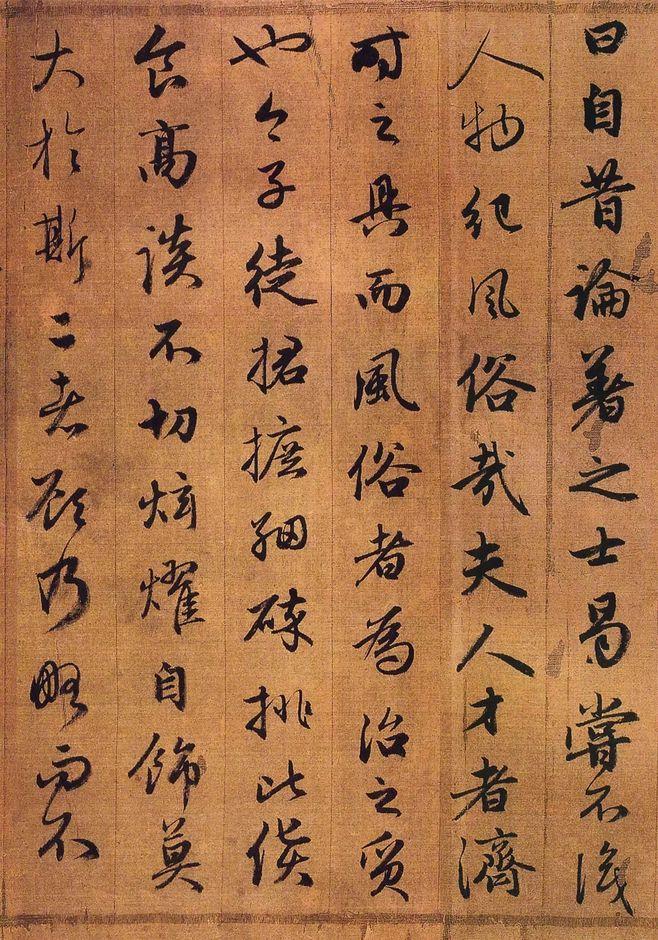 曰自昔論著之士曷嘗不議
人物紀風俗哉夫人才者濟
時之具而風俗者為治之質
也今子徒捃摭細碎排比侯
食高談不切炫燿自飾莫
大於斯二者顧乃略而不